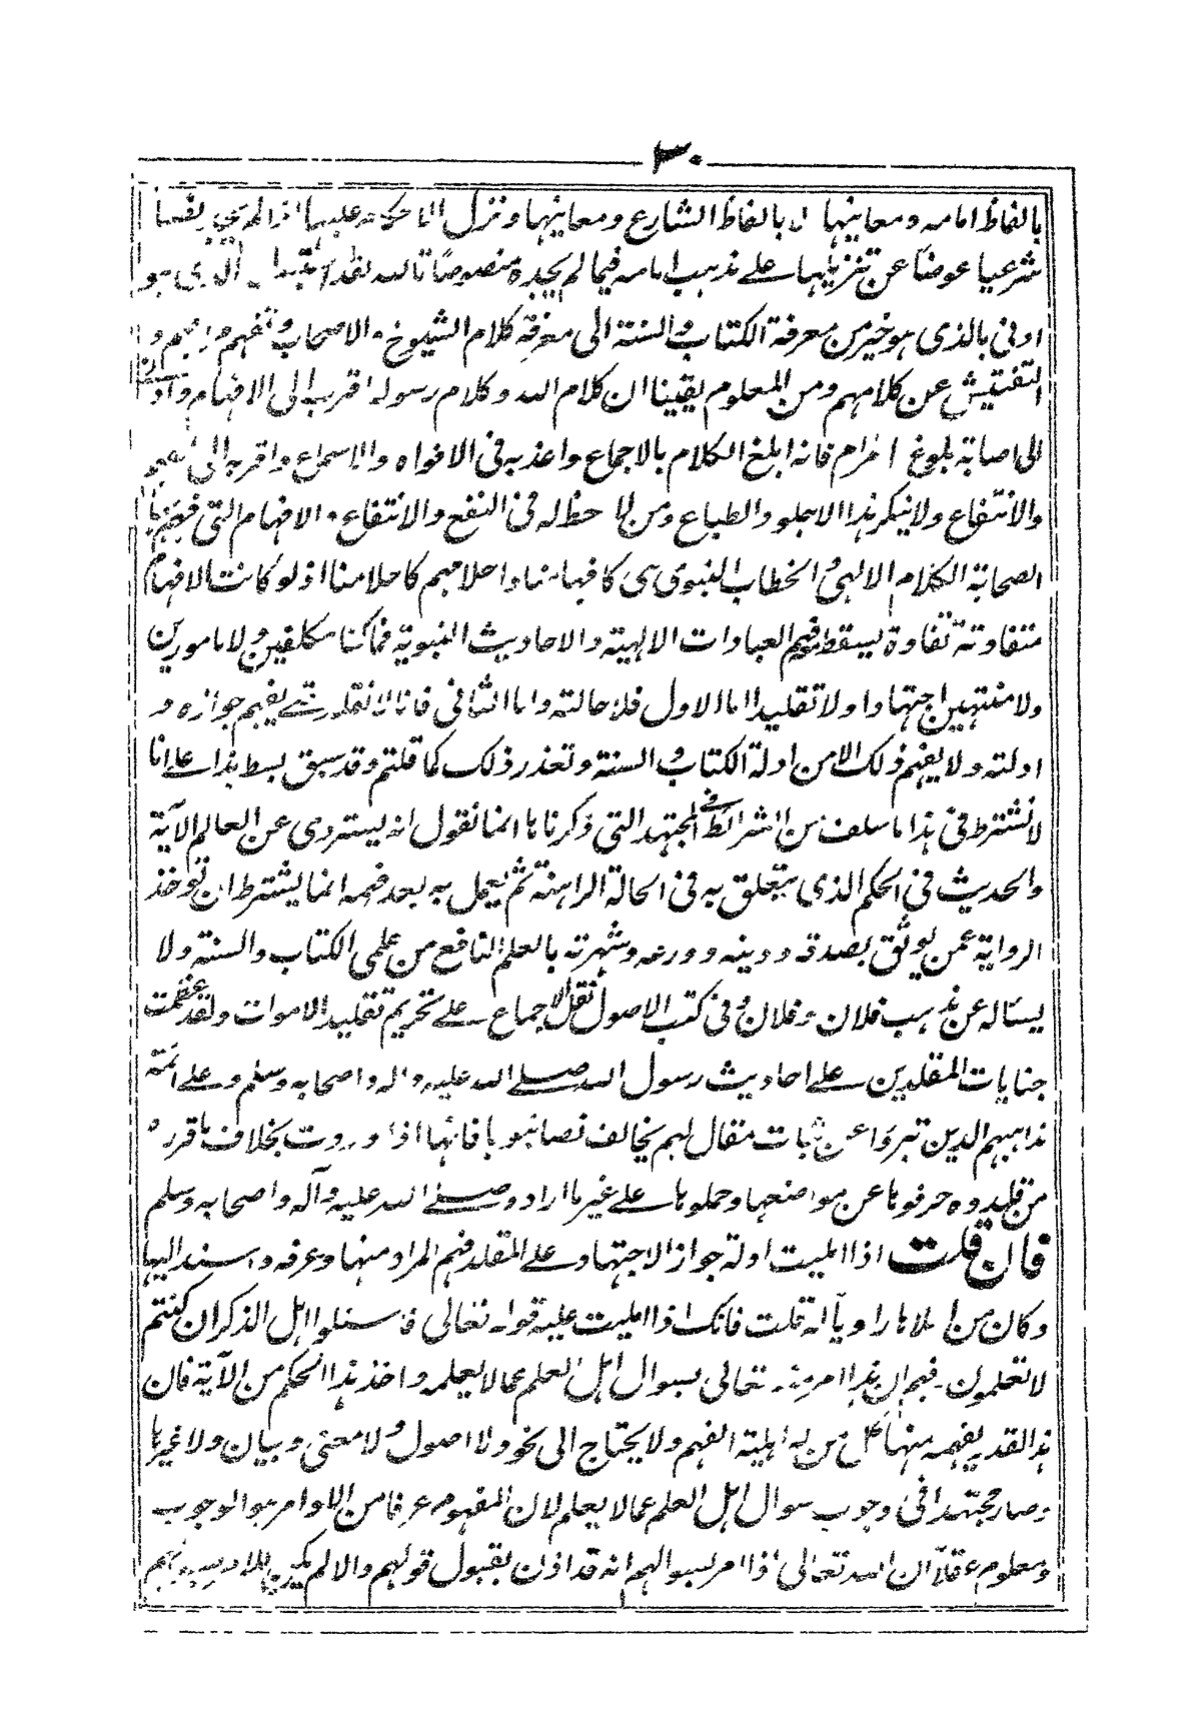 ٣٠
بالفاظ امامه ومعانيها بالفاظ الشارع ومعانيها وتنزل
شرعيا عوضا عن تنزيلها على مذهب امامه فيما لم يجده منصوصا تالله لقد استبدل الذى هو
ادنى بالذى هو خير من معرفة الكتاب والسنة الى معرفة كلام الشيوخ والاصحاب وتفهم مرامهم و
التفتيش عن كلامهم ومن المعلوم يقينا ان كلام الله وكلام رسوله اقرب الى الافهام وادنى
الى اصابة بلوغ المرام فانه ابلغ الكلام بالاجماع واعذبه فى الافواه والاسماع واقربه الى
والانتفاع ولا ينكر هذا الا جلمود الطباع ومن لا حظ له فى النفع والانتفاع والافهام التى فهم بها
الصحابة الكلام الالهى والخطاب النبوى هى كافهامنا واحلامهم كاحلامنا اذ لو كانت الافهام
متفاوتة تفاوتا يسقط معه فهم العبارات الالهية والاحاديث النبوية فما كنا مكلفين ولا مامورين
ولا منتهين اجتهادا ولا تقليدا اما الاول فلاحالته واما الثانى فلانا لا نقلد حتى يفهم جوازه و
ادلته ولا يفهم ذلك الا من ادلة الكتاب والسنة وتعذر ذلك كما قلتم وقد سبق بسط هذا على انا
لا نشترط فى هذا ما سلف من الشرائط فى المجتهد التى ذكرناها انما نقول انه يستروى عن العالم الآية
والحديث فى الحكم الذى يتعلق به فى الحالة الراهنة ثم يعمل به بعد فهمه انما يشترط ان تؤخذ
الرواية عمن يوثق بصدقه ودينه وورعه وشهرته بالعلم النافع من علمى الكتاب والسنة ولا
يسأله عن مذهب فلان وفلان وفى كتب الاصول نقل الاجماع على تحريم تقليد الاموات ولقد عظمت
جنايات المقلدين على احاديث رسول الله صلى الله عليه وآله واصحابه وسلم وعلى ائمة
مذاهبهم الذين تبرؤا عن اثبات مقال لهم يخالف نصا نبويا فانها اذا وردت بخلاف ما قرره
من قلدوه حرفوها عن مواضعها وحملوها على غير ما اراده صلى الله عليه وآله واصحابه وسلم
فان قلت اذا امليت ادلة جواز الاجتهاد على المقلد فهم المراد منها وعرفه واسند اليها
وكان من املاها راويا له قلت فانك اذا امليت عليه قوله تعالى فاسئلوا اهل الذكر ان كنتم
لا تعلمون فهم ان هذا امر منه تعالى بسوال اهل العلم عما لا يعلمه واخذ هذا الحكم من الآية فان
هذا القدر يفهمه منها كل من له اهلية الفهم ولا يحتاج الى نحو ولا اصول ولا معنى وبيان ولا غيرها
وصار مجتهدا فى وجوب سوال اهل العلم عما لا يعلم لان المفهوم عرفا من الاوامر هو الوجوب
ومعلوم عقلا ان الله تعالى اذا امر بسوالهم انه قد اذن بقبول قولهم والا لم يكن للامر